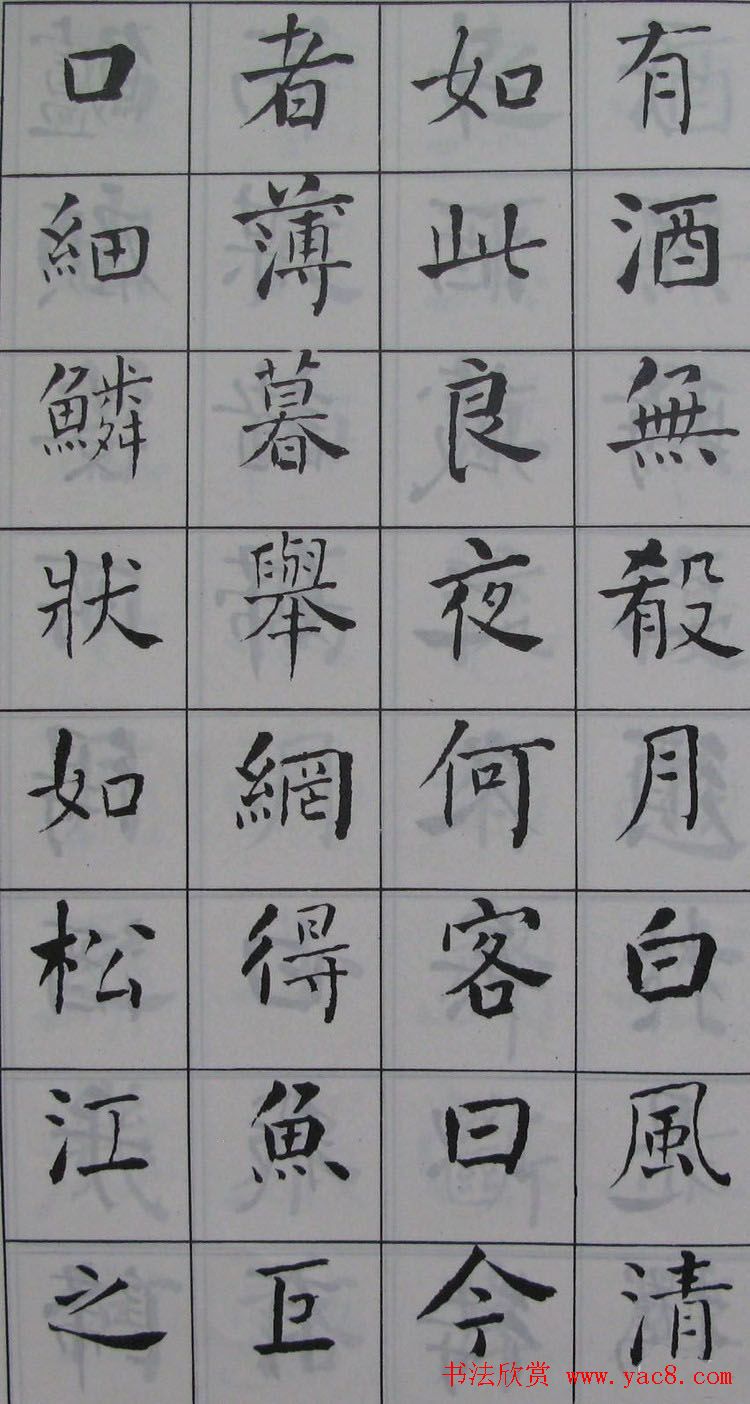 有酒無殽月白風清
如此良夜何客曰今
者薄暮舉網得魚巨
口細鱗狀如松江之
书法欣赏 www.yac8.com